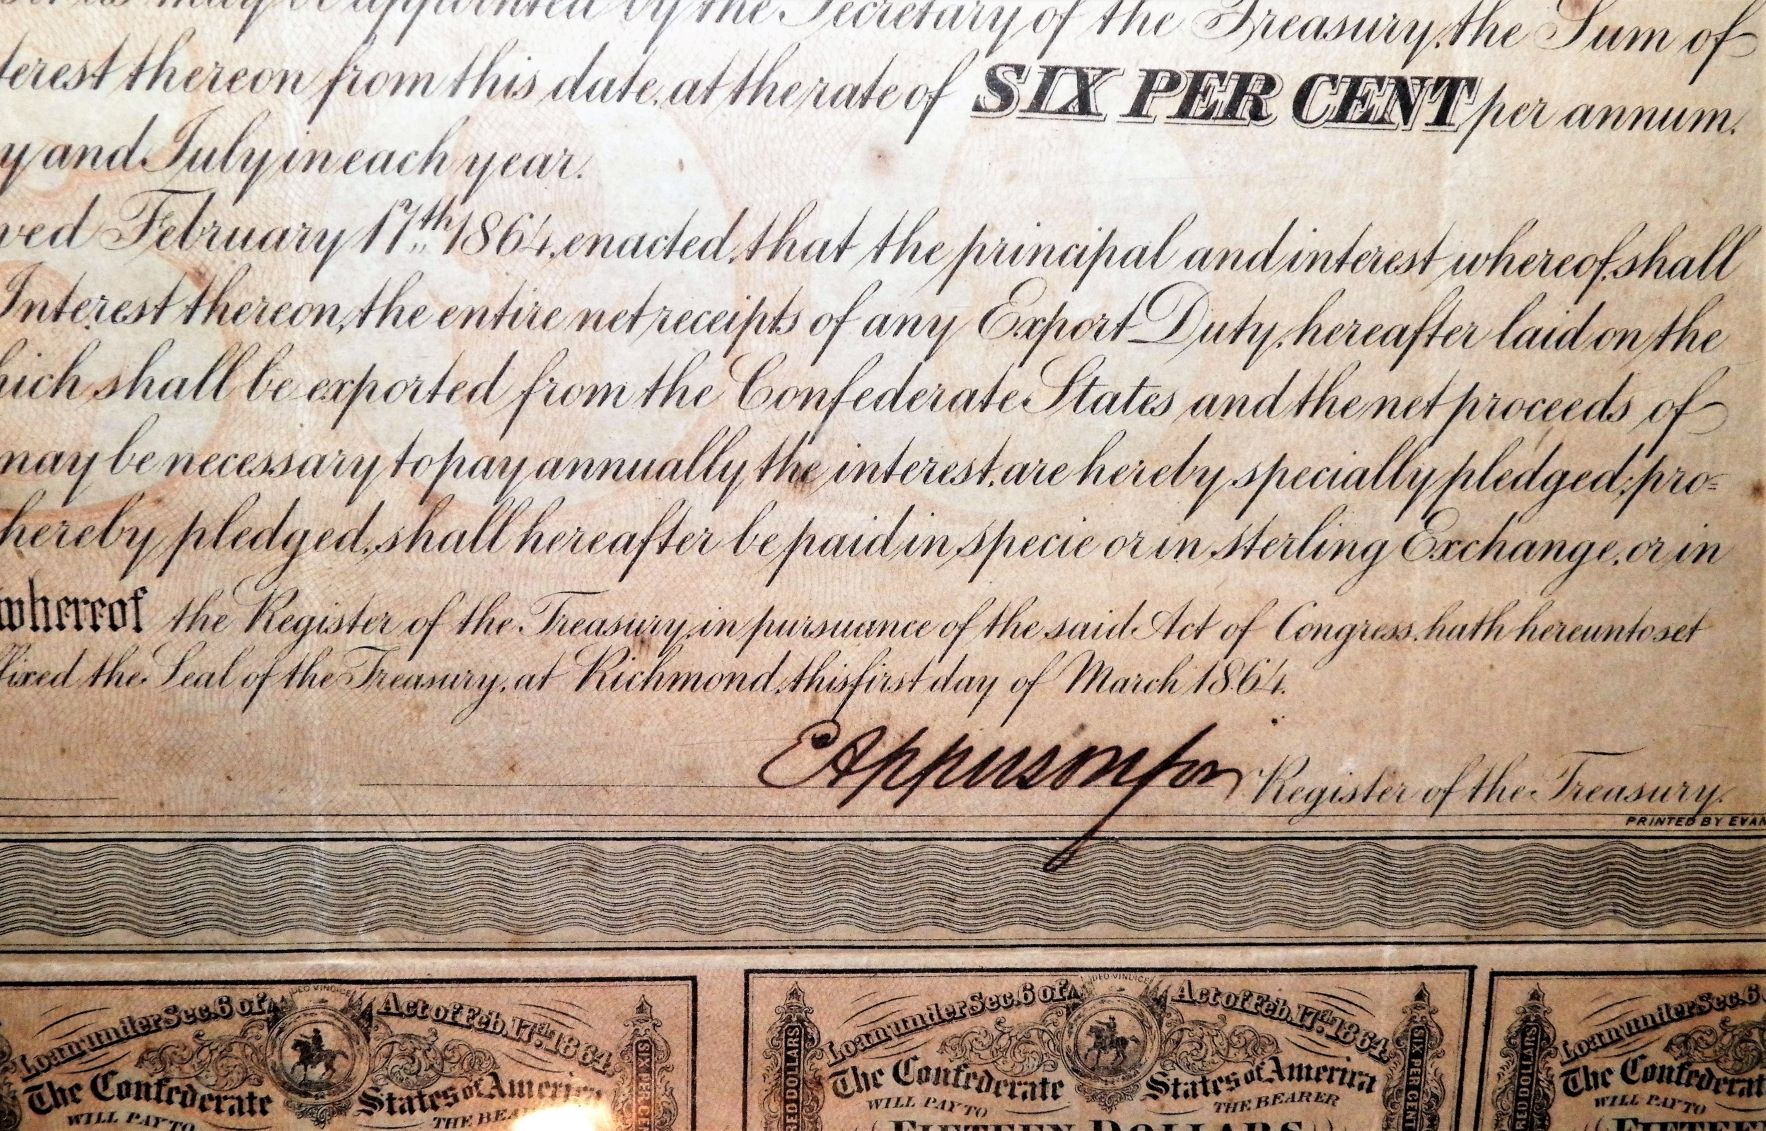 may be appointed by the Secretary of the Treasury, the Sum of
terest thereon from this date, at the rate of SIX PER CENT per annum.
y and July in each year.
ved February 17th 1864, enacted, that the principal and interest whereof, shall
Interest thereon, the entire net receipts of any Export Duty, hereafter laid on the
hich shall be exported from the Confederate States and the net proceeds of
may be necessary to pay annually the interest, are hereby specially pledged; pro=
hereby pledged, shall hereafter be paid in specie or in sterling Exchange, or in
whereof the Register of the Treasury, in pursuance of the said Act of Congress, hath hereunto set
ffixed the Seal of the Treasury, at Richmond, this first day of March 1864.
E Apperson for Register of the Treasury.
PRINTED BY EVAN
Loan under Sec. 6 of Act of Feb. 17th 1864
DEO VINDICE
The Confederate States of America
WILL PAY TO THE BEA
SIX PER CEN
RED DOLLARS
Loan under Sec. 6 of Act of Feb. 17th 1864
DEO VINDICE
The Confederate States of America
WILL PAY TO THE BEARER
FIFTEEN DOLLARS
SIX PER CENT
RED DOLLARS
Loan under Sec. 6
The Confederat
WILL PAY TO
FIFTEE